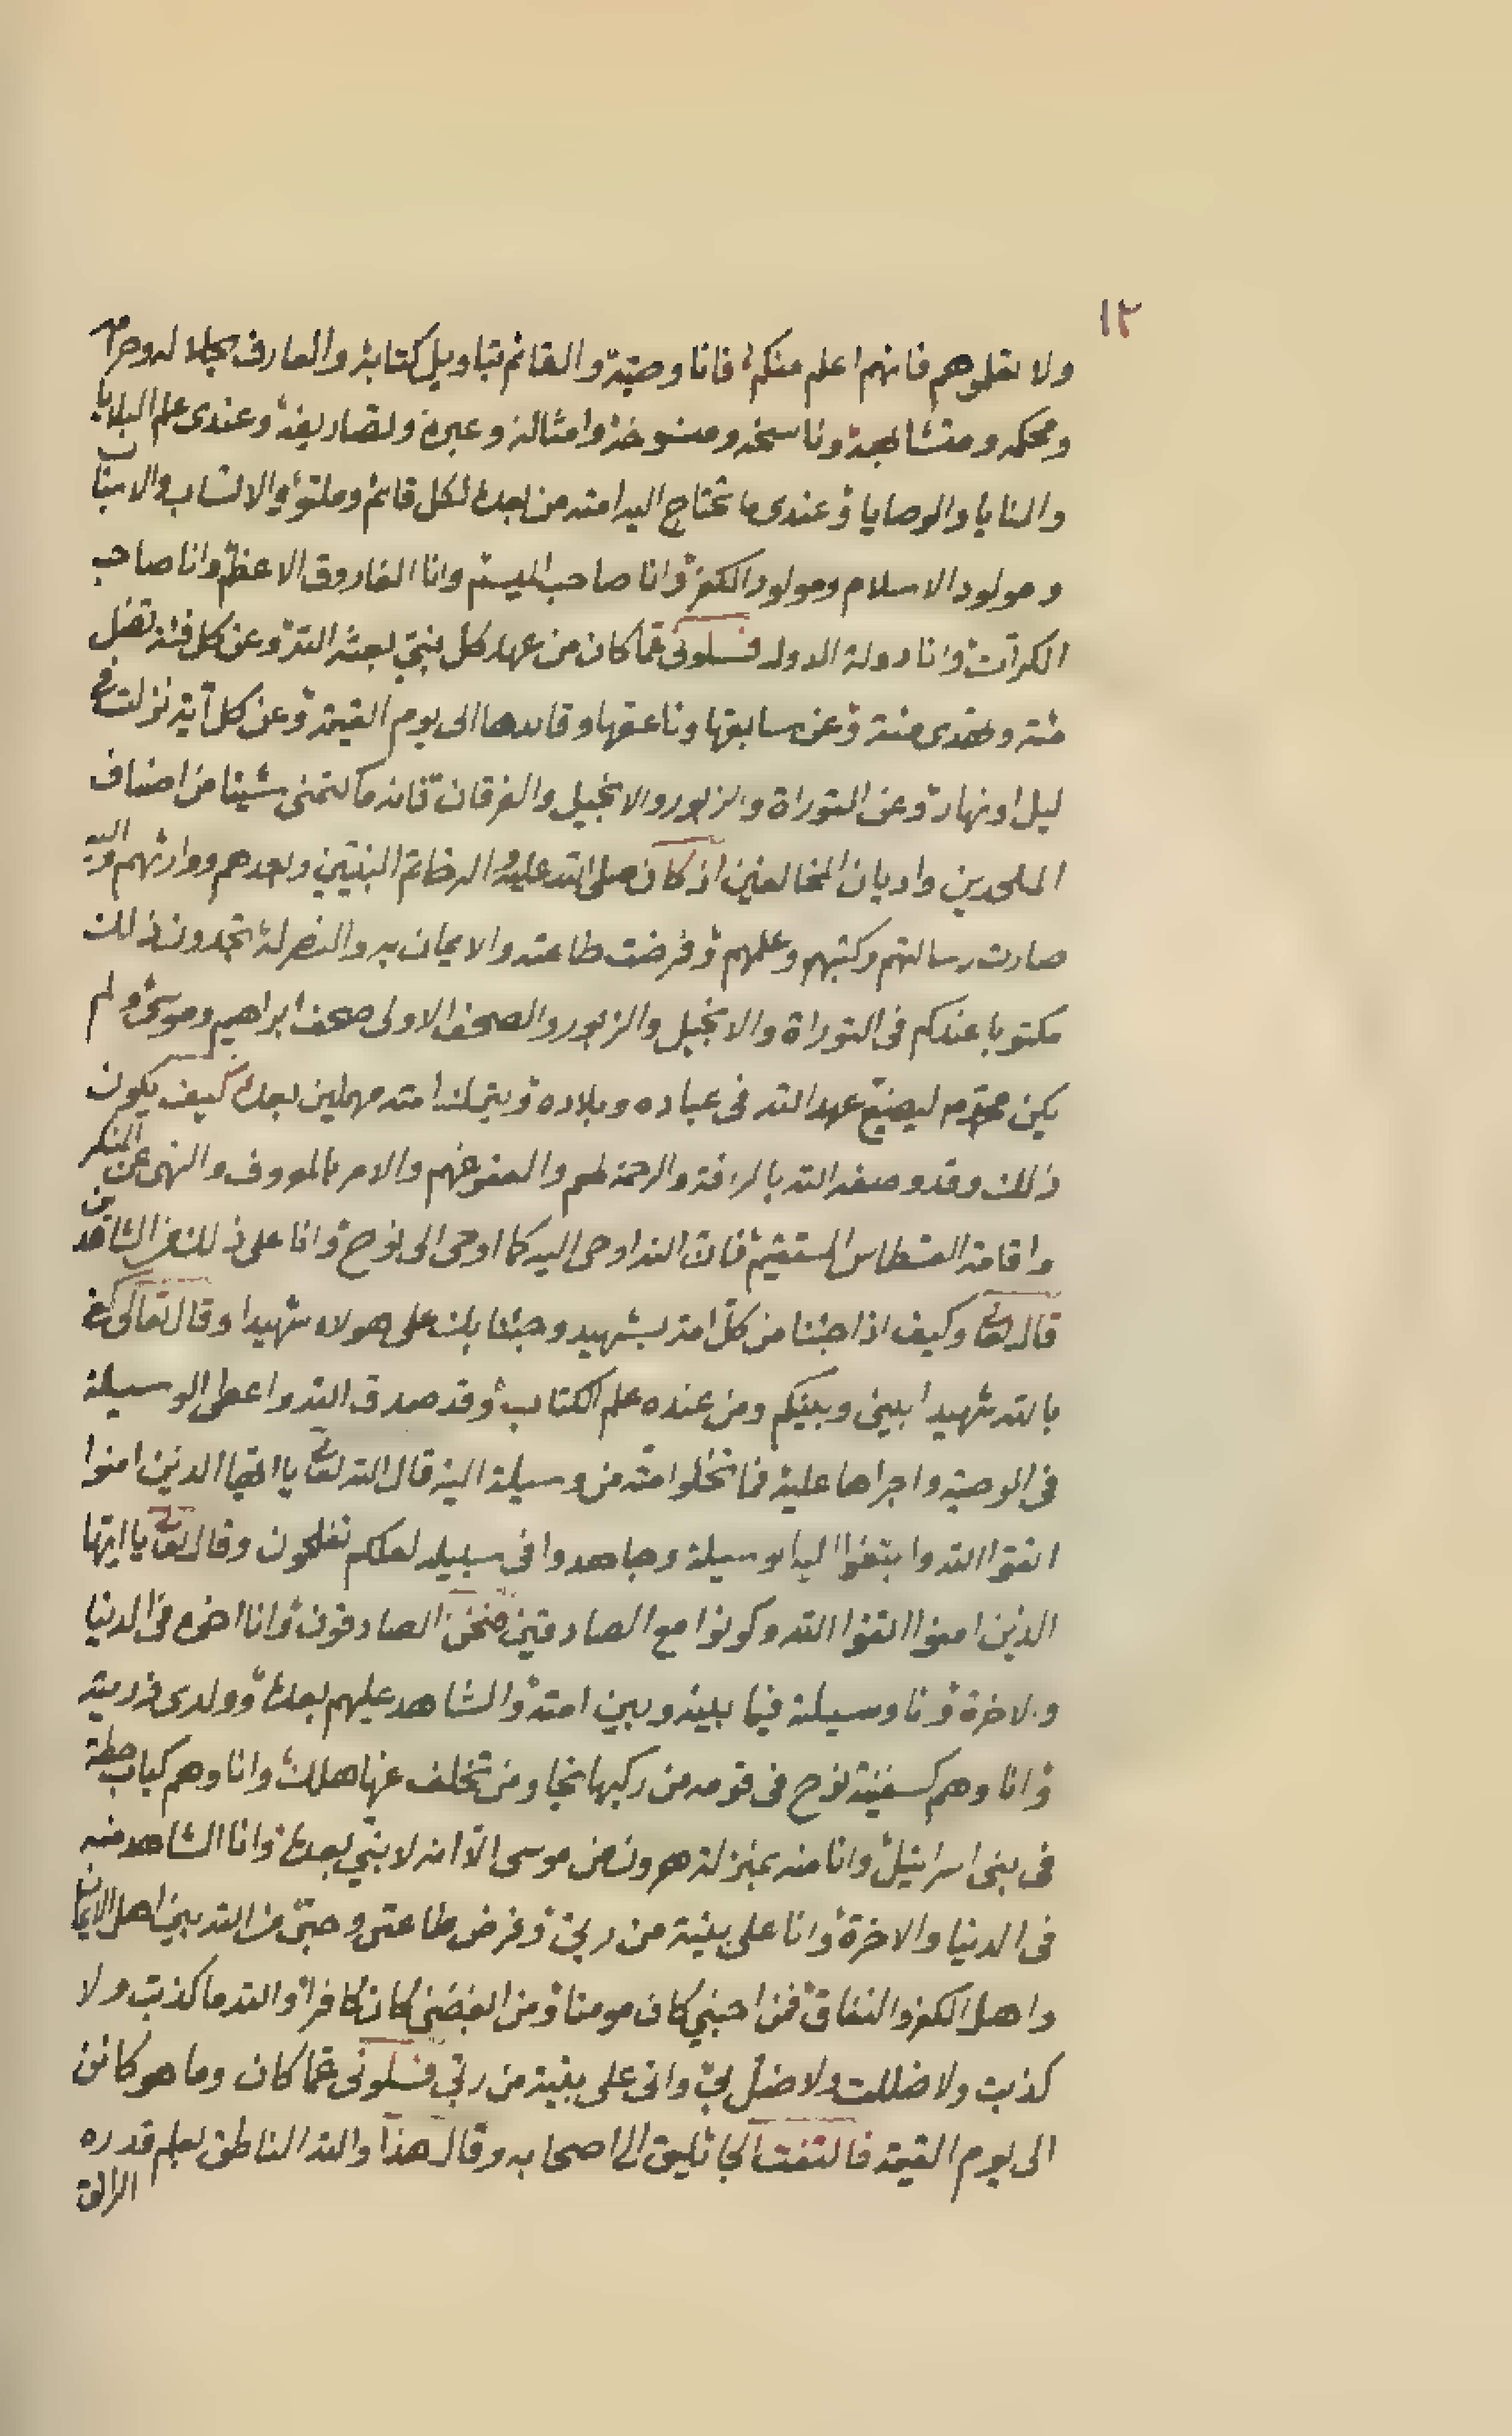 ١٢
ولا تعلموهم فانهم اعلم منكم فانا وصيه والقائم بتاويل كتابه والعارف بحلاله وحرامه
ومحكمه ومتشابهه وناسخه ومنسوخه وامثاله وعبره وتصاريفه وعندى علم البلايا
والمنايا والوصايا وعندى ما تحتاج اليه امته من بعده لكل قائم وملتو والانساب والاسباب
ومولود الاسلام ومولود الكفر وانا صاحب الميسم وانا الفاروق الاعظم وانا صاحب
الكرات وانا دولة الدول فسلونى عما كان من عهد كل نبي بعثه الله وعن كل فئة تضل
مئة وتهدى مئة وعن سابقها وناعقها وقائدها الى يوم القيمة وعن كل آية نزلت فى
ليل او نهار وعن التوراة والزبور والانجيل والفرقان فانه ما كتمنى شيئا من اصناف
الملحدين واديان المخالفين اذ كان صلى الله عليه واله خاتم النبيين وبعدهم ووارثهم واليه
صارت رسالتهم وكتبهم وعلمهم وفرضت طاعته والايمان به والنصر له تجدون ذلك
مكتوبا عندكم فى التوراة والانجيل والزبور والصحف الاولى صحف ابراهيم وموسى ولم
يكن محمد ليضيع عهد الله فى عباده وبلاده ويترك امته مهملين بعده كيف يكون
ذلك وقد وصفه الله بالرافة والرحمة لهم والعفو عنهم والامر بالمعروف والنهى عن المنكر
واقامة القسطاس المستقيم فان الله اوحى اليه كما اوحى الى نوح وانا على ذلك من الشاهدين
قال تعالى وكيف اذا جئنا من كل امة بشهيد وجئنا بك على هولاء شهيدا وقال تعالى كفى
بالله شهيدا بينى وبينكم ومن عنده علم الكتاب وقد صدق الله واعطى الوسيلة
فى الوصية واجراها عليه فما تخلوا امته من وسيلة اليه قال الله تعالى يا ايها الذين امنوا
اتقوا الله وابتغوا اليه الوسيلة وجاهدوا فى سبيله لعلكم تفلحون وقال تعالى يا ايها
الذين امنوا اتقوا الله وكونوا مع الصادقين فنحن الصادقون وانا اخوه فى الدنيا
والاخرة وانا وسيلة فيما بينه وبين امته والشاهد عليهم بعده وولدى ذريته
وانا وهم كسفينة نوح فى قومه من ركبها نجا ومن تخلف عنها هلك وانا وهم كباب حطة
فى بنى اسرائيل وانا منه بمنزلة هرون من موسى الا انه لا نبي بعده وانا الشاهد منه
فى الدنيا والاخرة وانا على بينة من ربى وفرض طاعتى وحبى من الله بين اهل الايمان
واهل الكفر والنفاق فمن احبني كان مومنا ومن ابغضنى كان كافرا والله ما كذبت ولا
كذبت ولا ضللت ولا ضل بى وانى على بينة من ربى فسلونى عما كان وما هو كائن
الى يوم القيمة فالتفت الجاثليق الى اصحابه وقال هذا والله الناطق بعلم قدره
الراتق